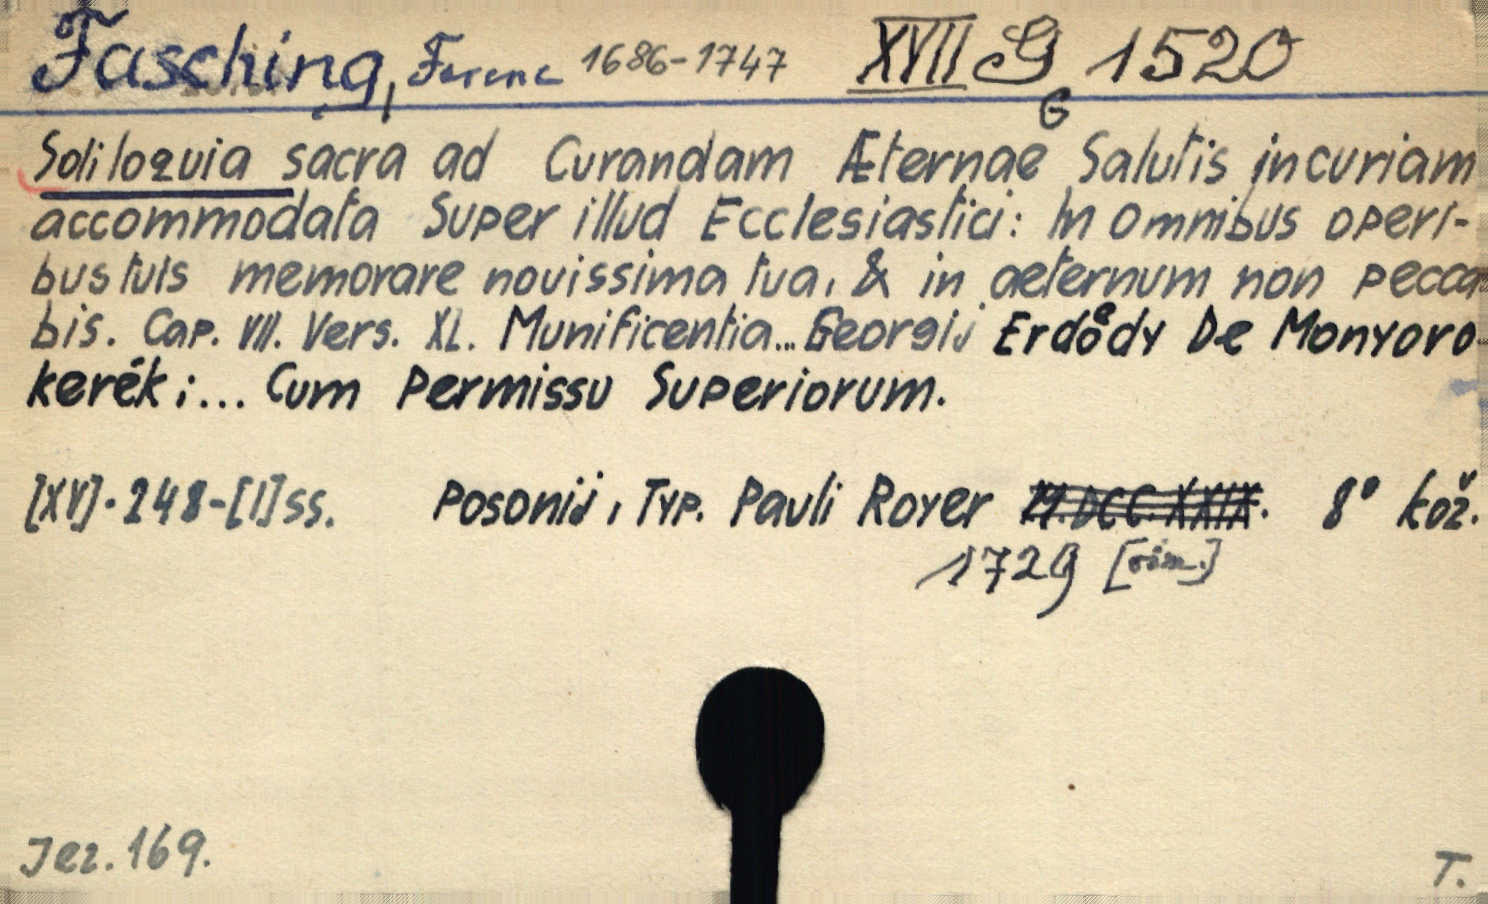 Fasching, Ferenc 1686-1747 XVIII G 1520
G
Soliloquia sacra ad Curandam Æternae Salutis incuriam
accommodata Super illud Ecclesiastici: In omnibus operi-
bus tuis memorare novissima tua, & in aeternum non pecca
bis. Cap. VII. Vers. XL. Munificentia... Georgij Erdődy De Monyoro-
kerék;... Cum Permissu Superiorum.
[XV]-248-[1]ss. Posonij, Typ. Pauli Royer M.DCC.XXIX. 8° kož.
1729 [rim.]
Jez. 169.
T.